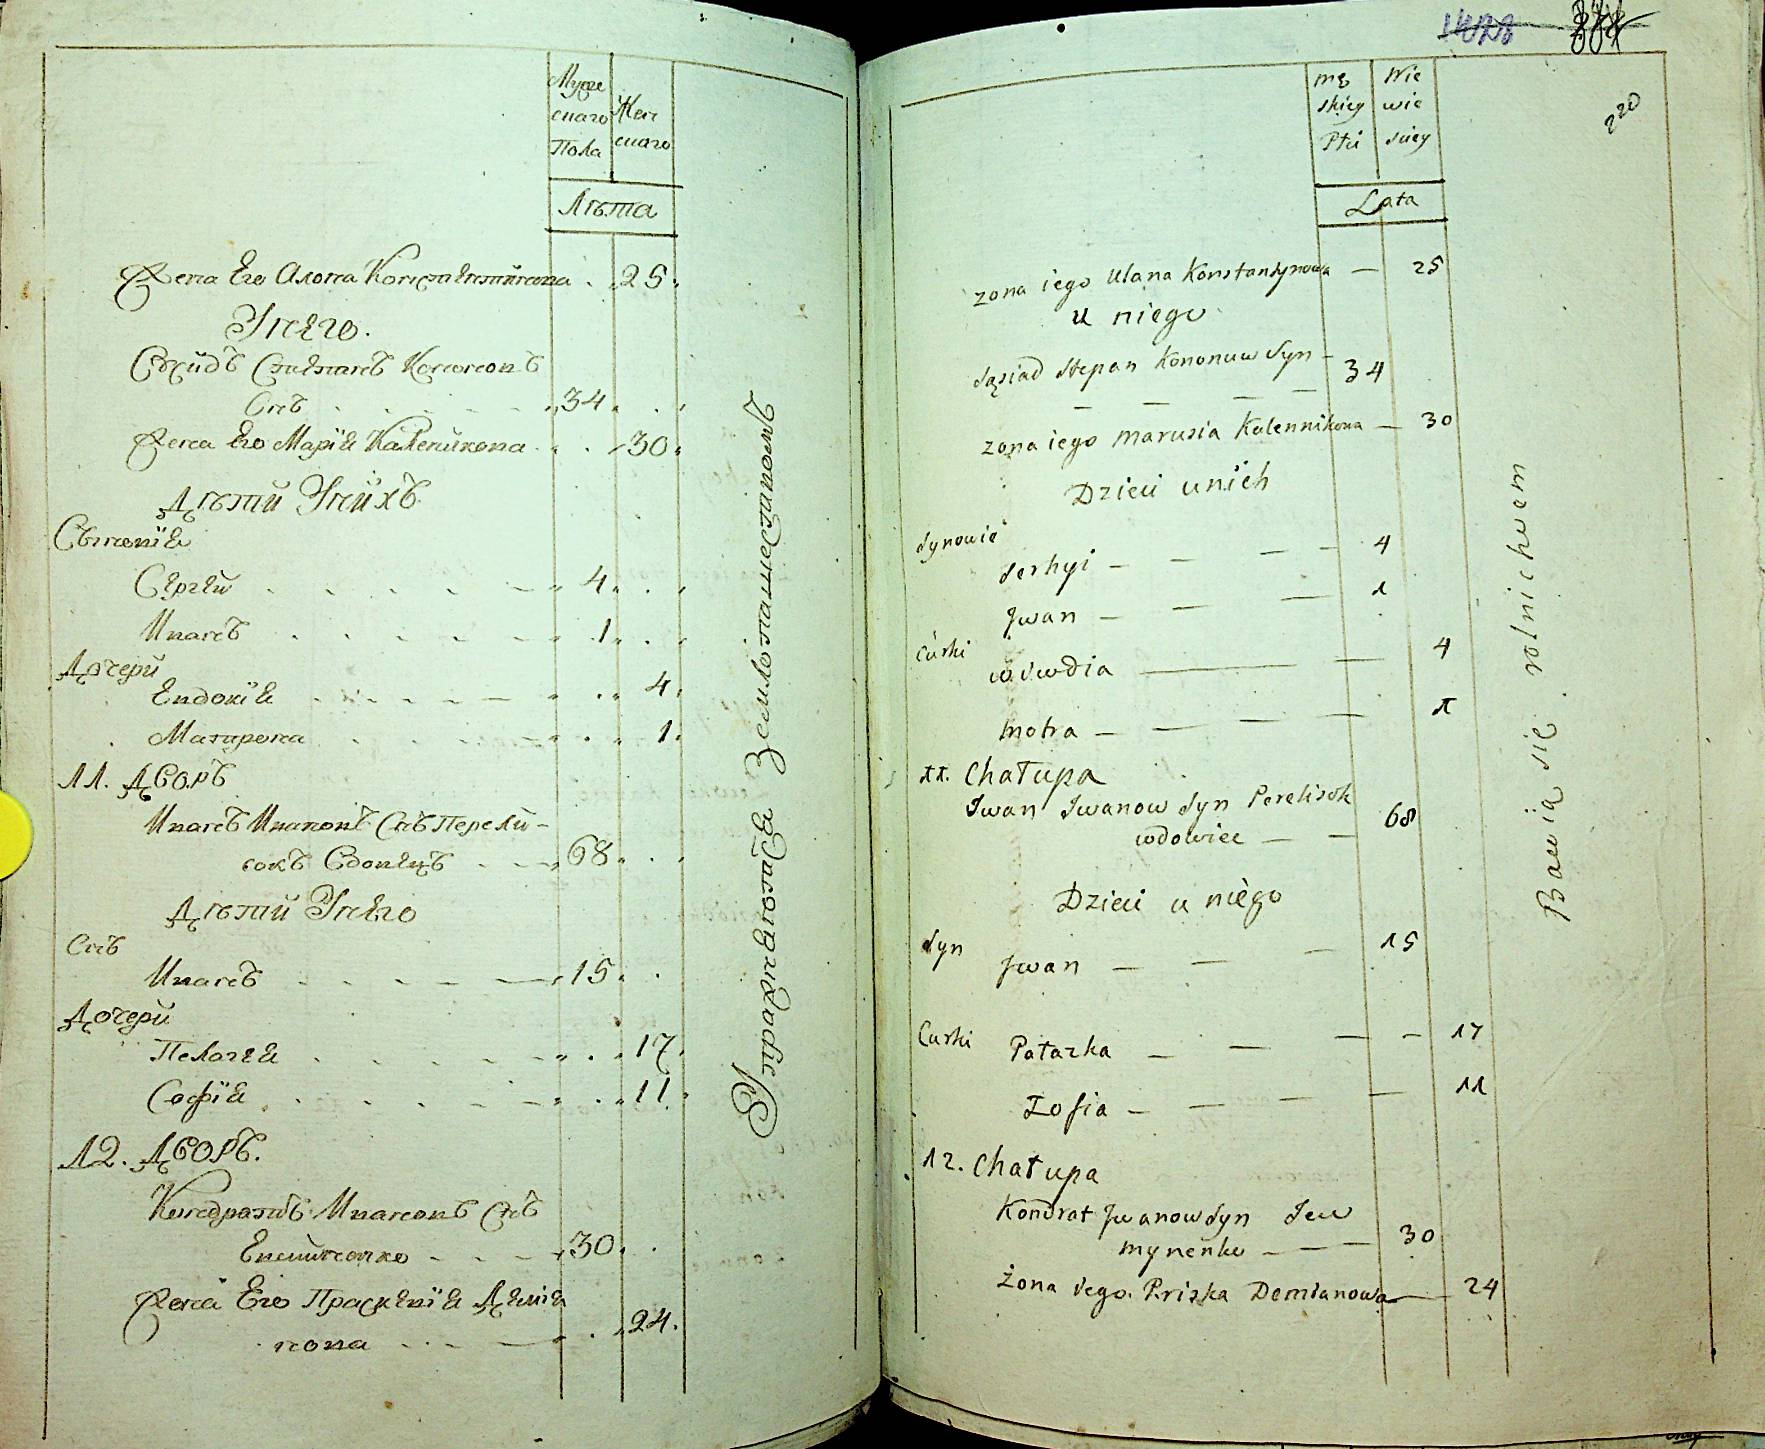 Муже Жен
скаго скаго
Пола
Лѣта
Жена Его Алона Константинова 25
Унего.
Сусидъ Степанъ Кононовъ
Снъ 34
Жена Его Марія Каленикова 30
Дѣти Унихъ
Сыновія
Сергей 4
Иванъ 1
Дочери
Евдокія 4
Матрона 1
11. Дворъ
Иванъ Ивановъ Снъ Перели-
сокъ Вдовецъ 68
Дѣти Унего
Снъ
Иванъ 15
Дочери
Пелагея 17
Софія 11
12. Дворъ.
Кондратъ Ивановъ Снъ
30
Жена Его Праскевія Демія
нова 24.
Упражняются Землепашествомъ
1428
220
Mę Nie
skiey wie
Płci skiey
Lata
zona iego Ulana Konstantynowa — 25
u niego
Sąsiad Stepan Kononuw Syn — 34
zona iego Marusia Kalennikowa — 30
Dzieci unich
Synowie
Serhyi — 4
Jwan — 1
Curki
Wiwdia — 4
Motra — 1
11. Chałupa
Iwan Iwanow Syn Perelisok
wdowiec — 68
Dzieci u niego
Syn
Jwan — 15
Curki Patazka — 17
Zofia — 11
12. Chałupa
Kondrat Jwanow Syn Jew
mynenko — 30
żona Jego Priska Demianowa — 24
Bawią się rolnictwem